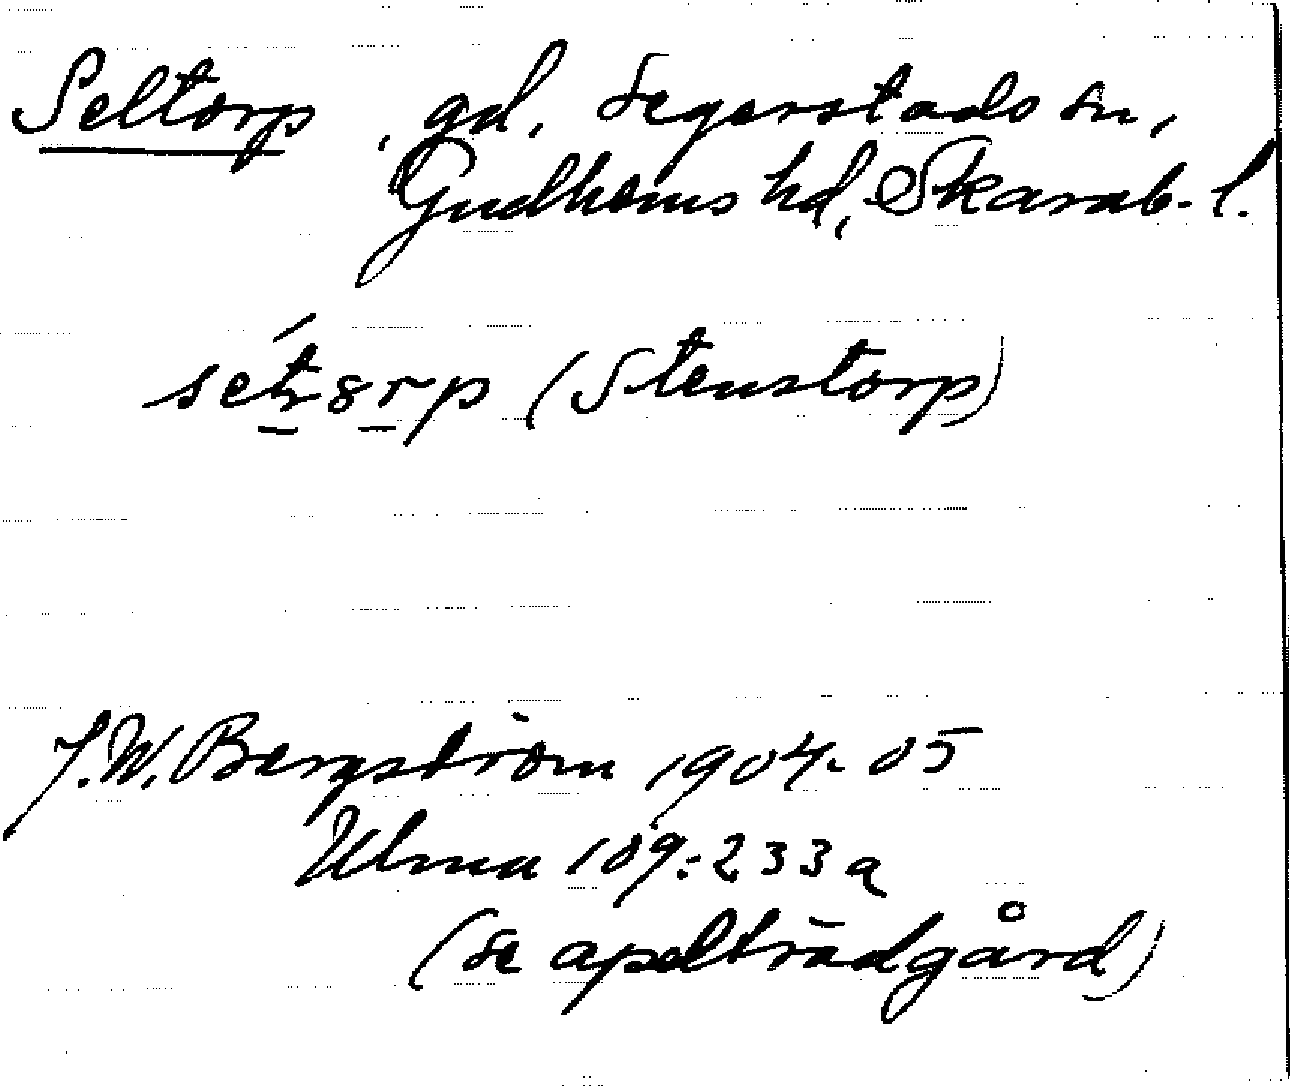 Seltorp, gd, Segerstads sn,
Gudhems hd, Skarab. l.
(Stenstorp)
J. W. Bergström 1904-05
Ulma 109:233a
(se apelträdgård)